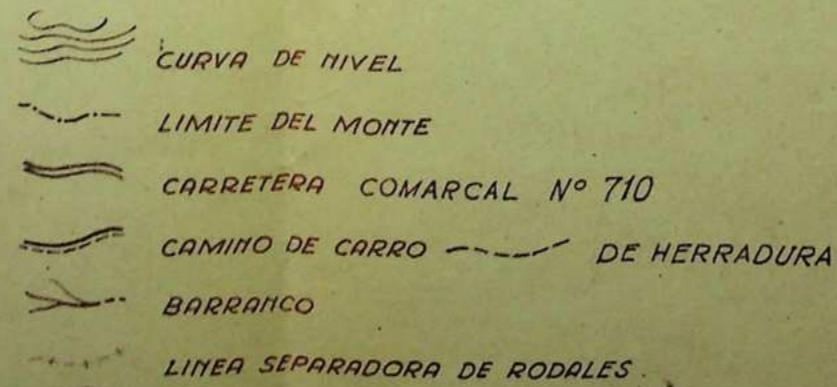 CURVA DE NIVEL
LIMITE DEL MONTE
CARRETERA COMARCAL Nº 710
CAMINO DE CARRO DE HERRADURA
BARRANCO
LINEA SEPARADORA DE RODALES.